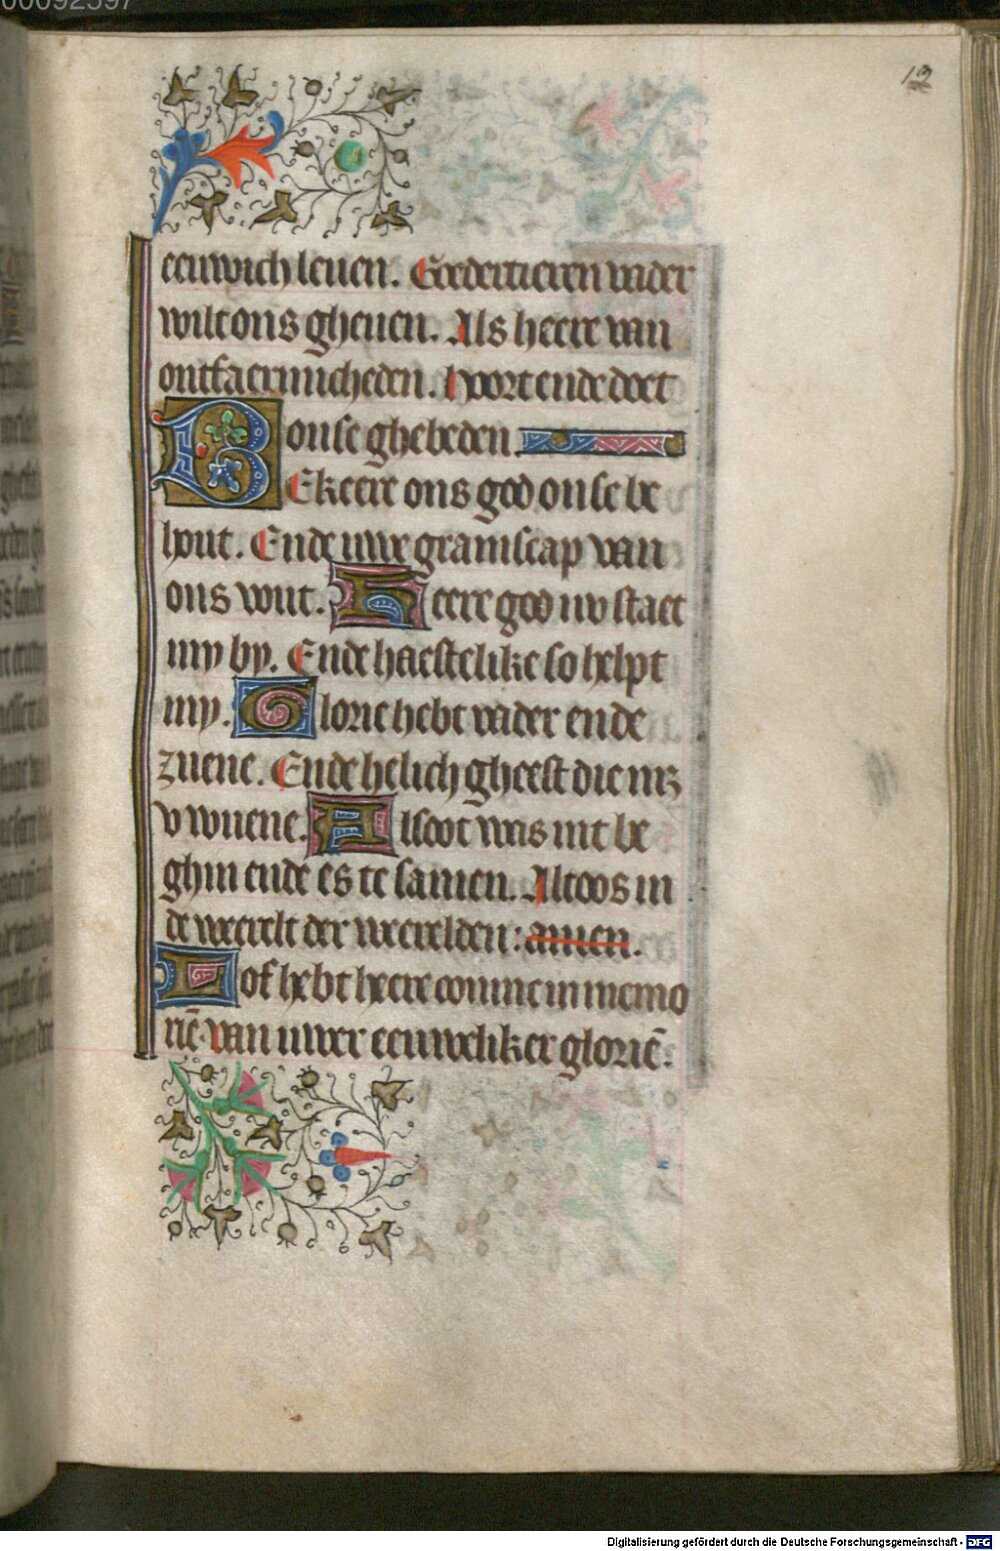 12
eeuwich leuen. Goedertieren vader
wilt ons gheuen. Als heere van
ontfaermicheden. Hoort ende doet
onse ghebeden.
BEkeere ons god onse be
hout. Ende uwe gramscap van
ons wut. Heere god nv staet
my by. Ende haestelike so helpt
my. Glorie hebt vader ende
zuene. Ende helich gheest die niꝫ
v wuene. Alsoot was int be
ghin ende es te samen. Altoos in
de weerelt der weerelden: amen.
Lof hebt heere comme in memo
riē van uwer eeuweliker gloriē.
Digitalisierung gefördert durch die Deutsche Forschungsgemeinschaft - DFG